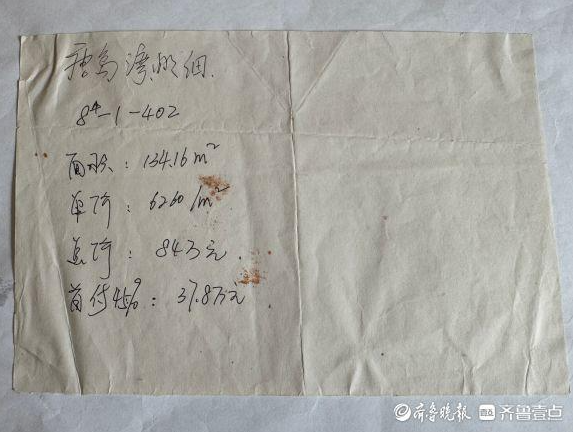 鹊岛湾明细.
8#-1-402
面积: 134.16m²
单价: 6260/m²
总价: 84万元.
首付45%: 37.8万元.
齐鲁晚报 齐鲁壹点